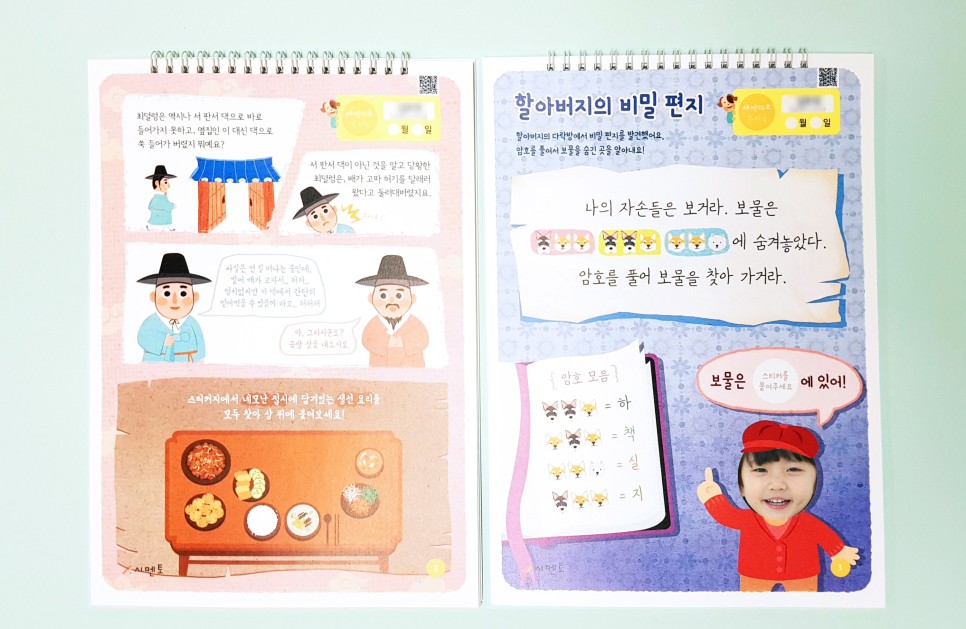 최덜렁은 역시나 서 판서 댁으로 바로
들어가지 못하고, 옆집인 이 대신 댁으로
쑥 들어가 버렸지 뭐예요?
월 일
서 판서 댁이 아닌 것을 알고 당황한
최덜렁은, 배가 고파 허기를 달래러
왔다고 둘러대버렸지요.
사실은 먼 길 떠나는 중인데,
아, 그러시군요?
스티커지에서 네모난 접시에 담겨있는 생선 요리를
모두 찾아 상 위에 붙여보세요!
시멘토
할아버지의 비밀 편지
할아버지의 다락방에서 비밀 편지를 발견했어요.
암호를 풀어서 보물을 숨긴 곳을 알아내요!
월 일
나의 자손들은 보거라. 보물은
에 숨겨놓았다.
암호를 풀어 보물을 찾아 가거라.
{ 암호 모음 }
= 하
= 책
= 실
= 지
보물은 스티커를 붙여주세요 에 있어!
시멘토